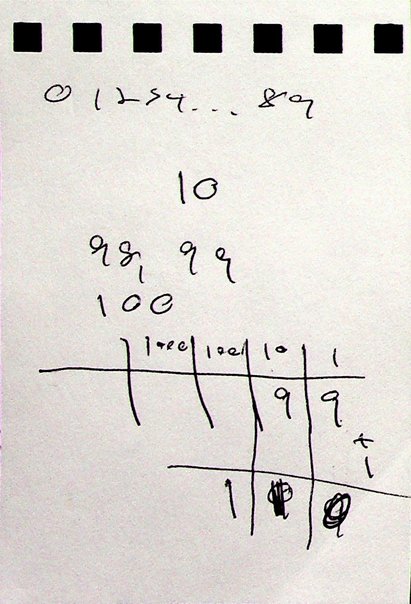 0 1234... 89
10
98, 99
100
1000 100 10 1
9 9
+
1
1